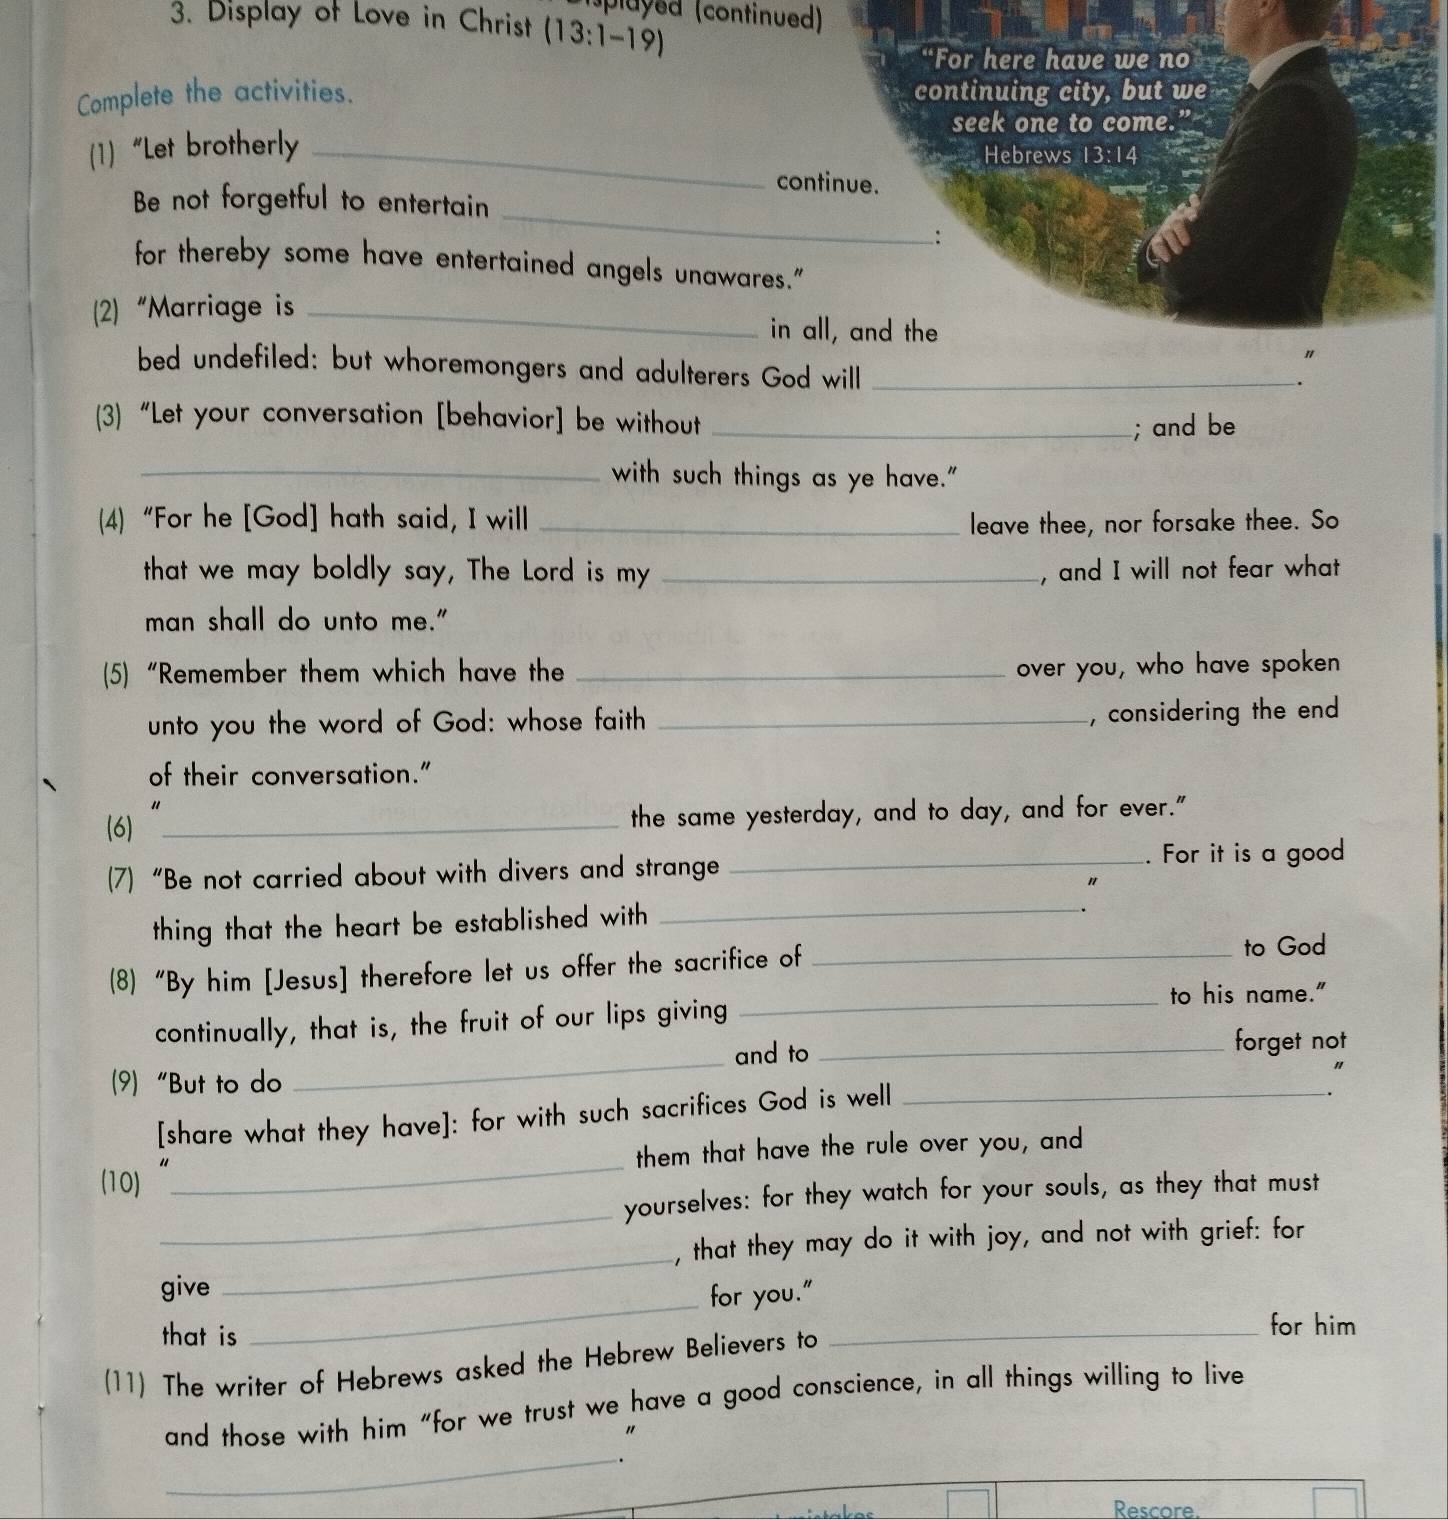 played (continued)
3. Display of Love in Christ (13:1–19)
"For here have we no
continuing city, but we
seek one to come."
Hebrews 13:14
Complete the activities.
(1) "Let brotherly ____ continue.
Be not forgetful to entertain ____:
for thereby some have entertained angels unawares."
(2) "Marriage is ____ in all, and the
bed undefiled: but whoremongers and adulterers God will ____."
(3) "Let your conversation [behavior] be without ____; and be
____ with such things as ye have."
(4) "For he [God] hath said, I will ____ leave thee, nor forsake thee. So
that we may boldly say, The Lord is my ____, and I will not fear what
man shall do unto me."
(5) "Remember them which have the ____ over you, who have spoken
unto you the word of God: whose faith ____, considering the end
of their conversation."
(6) "____ the same yesterday, and to day, and for ever."
(7) "Be not carried about with divers and strange ____. For it is a good
thing that the heart be established with ____."
(8) "By him [Jesus] therefore let us offer the sacrifice of ____ to God
continually, that is, the fruit of our lips giving ____ to his name."
(9) "But to do ____ and to ____ forget not
[share what they have]: for with such sacrifices God is well ____."
(10) "____ them that have the rule over you, and
____ yourselves: for they watch for your souls, as they that must
give ____, that they may do it with joy, and not with grief: for
that is ____ for you."
(11) The writer of Hebrews asked the Hebrew Believers to ____ for him
and those with him "for we trust we have a good conscience, in all things willing to live
____."
Rescore.